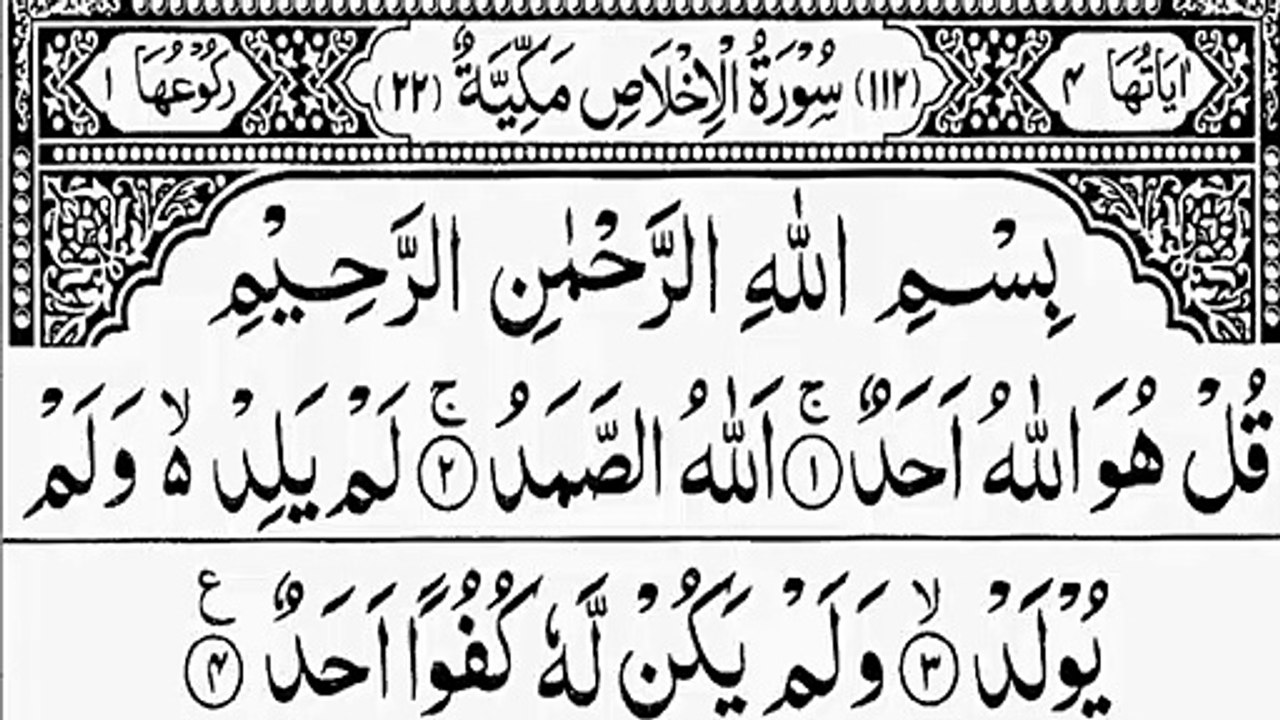 اٰیَاتُهَا ۴ (۱۱۲) سُوْرَةُ الْاِخْلَاصِ مَكِّیَّةٌ (۲۲) رُكُوْعُهَا ۱
بِسْمِ اللّٰهِ الرَّحْمٰنِ الرَّحِیْمِ
قُلْ هُوَ اللّٰهُ اَحَدٌ ۚ﴿۱﴾ اَللّٰهُ الصَّمَدُ ۚ﴿۲﴾ لَمْ یَلِدْ ۙ۬ وَلَمْ
یُوْلَدْ ۙ﴿۳﴾ وَلَمْ یَكُنْ لَّهٗ كُفُوًا اَحَدٌ ﴿۴﴾ ع